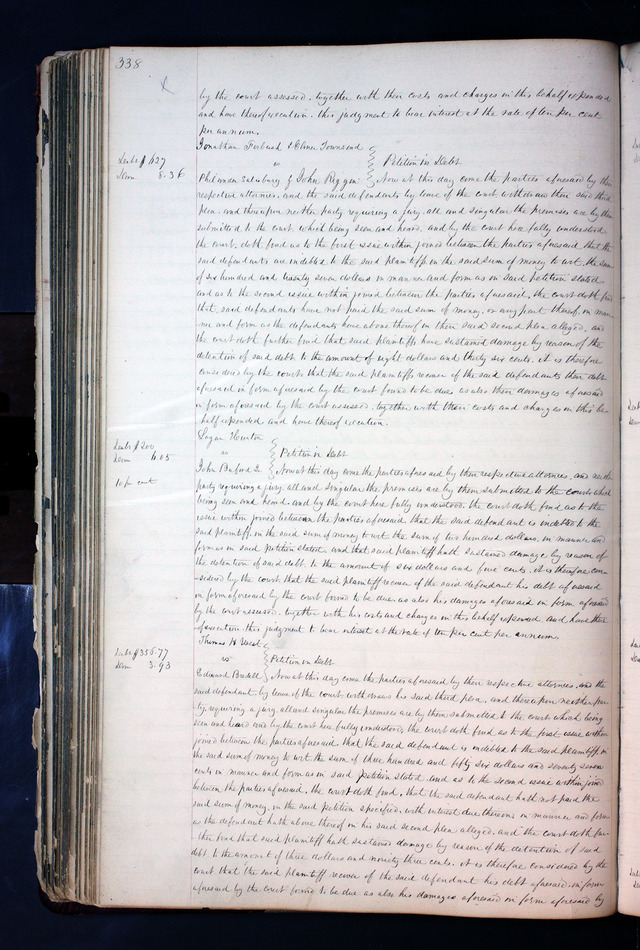 338
by the court assessed, together with their costs and charges in this behalf expended
and have thereof execution. this judgment to bear interest at the rate of ten per cent
per annum.
Jonathan & Oliver Townsend
vs Petition in Debt
Debt $ 627
Dam 8.36
Philander Salisbury & John Riggin Now at this day come the parties aforesaid by their
respective attornies, and the said defendants by leave of the court withdraw their said third
plea, and thereupon neither party requiring a jury, all and singular the premises are by them
submitted to the court, which being seen and heard, and by the court here fully understood
the court doth find as to the first issue within joined between the parties aforesaid, that the
said defendants are indebted to the said plaintiffs in the said sum of money to wit, the sum
of six hundred and twenty seven dollars in manner and form as in said petition stated
and as to the second issue within joined between the parties aforesaid, the court doth find
that said defendants have not paid the said sum of money, or any part thereof, in man
ner and form as the defendants have above thereof in their said second plea alleged, and
the court doth further find that said plaintiffs have sustained damage by reason of the
detention of said debt to the amount of eight dollars and thirty six cents. it is therefore
considered by the court that the said plaintiffs recover of the said defendants their debt
aforesaid in form aforesaid by the court found to be due, as also their damages aforesaid
in form aforesaid by the court assessed, together with their costs and charges in this be
half expended and have thereof execution.
Logan Hunton
Debt $ 200
vs Petition in Debt
Dam 6.05
John Buford Now at this day come the parties aforesaid by their respective attornies, and neither
10 pr cent
party requiring a jury, all and singular the premises are by them submitted to the court which
being seen and heard, and by the court here fully understood, the court doth find as to the
issue within joined between the parties aforesaid, that the said defendant is indebted to the
said plaintiff, in the said sum of money to wit the sum of two hundred dollars, in manner and
form as in said petition stated, and that said plaintiff hath sustained damage by reason of
the detention of said debt to the amount of six dollars and five cents. it is therefore con
sidered by the court that the said plaintiff recover of the said defendant his debt aforesaid
in form aforesaid by the court found to be due, as also his damages aforesaid in form aforesaid
by the court assessed, together with his costs and charges in this behalf expended and have thereof
execution. this judgment to bear interest at the rate of ten per cent per annum.
Thomas H
Debt $356.77
vs Petition in Debt
Dam 3.93
Edmund Now at this day come the parties aforesaid by their respective attornies, and the
said defendant by leave of the court withdraws his said third plea, and thereupon neither par
ty requiring a jury, all and singular the premises are by them submitted to the court which being
seen and heard and by the court here fully understood, the court doth find as to the first issue within
joined between the parties aforesaid, that the said defendant is indebted to the said plaintiff, in
the said sum of money to wit the sum of three hundred and fifty six dollars and seventy seven
cents in manner and form as in said petition stated, and as to the second issue within joined
between the parties aforesaid, the court doth find, that the said defendant hath not paid the
said sum of money, in the said petition specified, with interest due thereon in manner and form
as the defendant hath above thereof in his said second plea alleged, and the court doth fur
ther find that said plaintiff hath sustained damage by reason of the detention of said
debt to the amount of three dollars and ninety three cents. it is therefore considered by the
court that the said plaintiff recover of the said defendant his debt aforesaid in form
aforesaid by the court found to be due as also his damages aforesaid in form aforesaid by